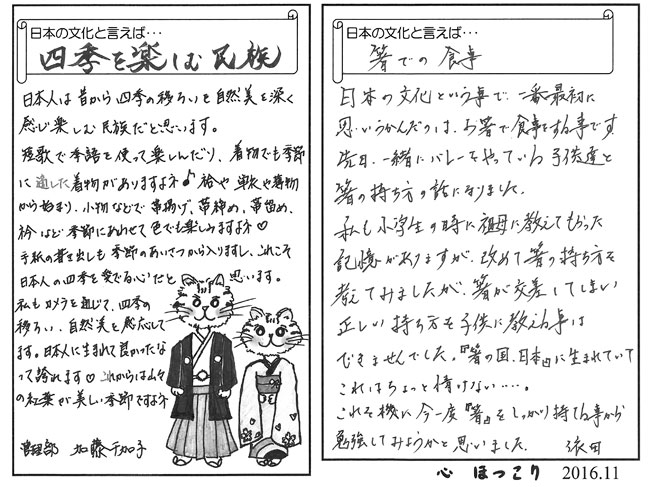 日本の文化と言えば…
四季を楽しむ民族
日本人は昔から四季の移ろいを自然美を深く
感じ楽しむ民族だと思います。
短歌で季語を使って楽しんだり、着物でも季節
に適した着物がありますよネ♪ 袷や単衣や薄物
から始まり、小物などで帯揚げ、帯締め、帯留め、
衿など季節にあわせて色でも楽しみますよネ♡
手紙の書き出しも季節のあいさつから入りますし、これこそ
日本人の四季を愛でる心だと思います。
私もカメラを通じて、四季の
移ろい、自然美を感じて
ます。日本人に生まれて良かったな
って誇れます♡ これからは山々
の紅葉が美しい季節ですよネ
管理部 加藤千加子
日本の文化と言えば…
箸での食事
日本の文化という事で、一番最初に
思いうかんだのは、お箸で食事をする事です
先日、一緒にバレーをやっている子供達と
箸の持ち方の話になりました。
私も小学生の時に祖母に教えてもらった
記憶がありますが、改めて箸の持ち方を
考えてみましたが、箸が交差してしまい
正しい持ち方を子供に教える事は
できませんでした。『箸の国、日本』に生まれていて
これはちょっと情けない…。
これを機に今一度『箸』をしっかり持てる事から
勉強してみようかと思いました。 依田
心 ほっこり 2016.11